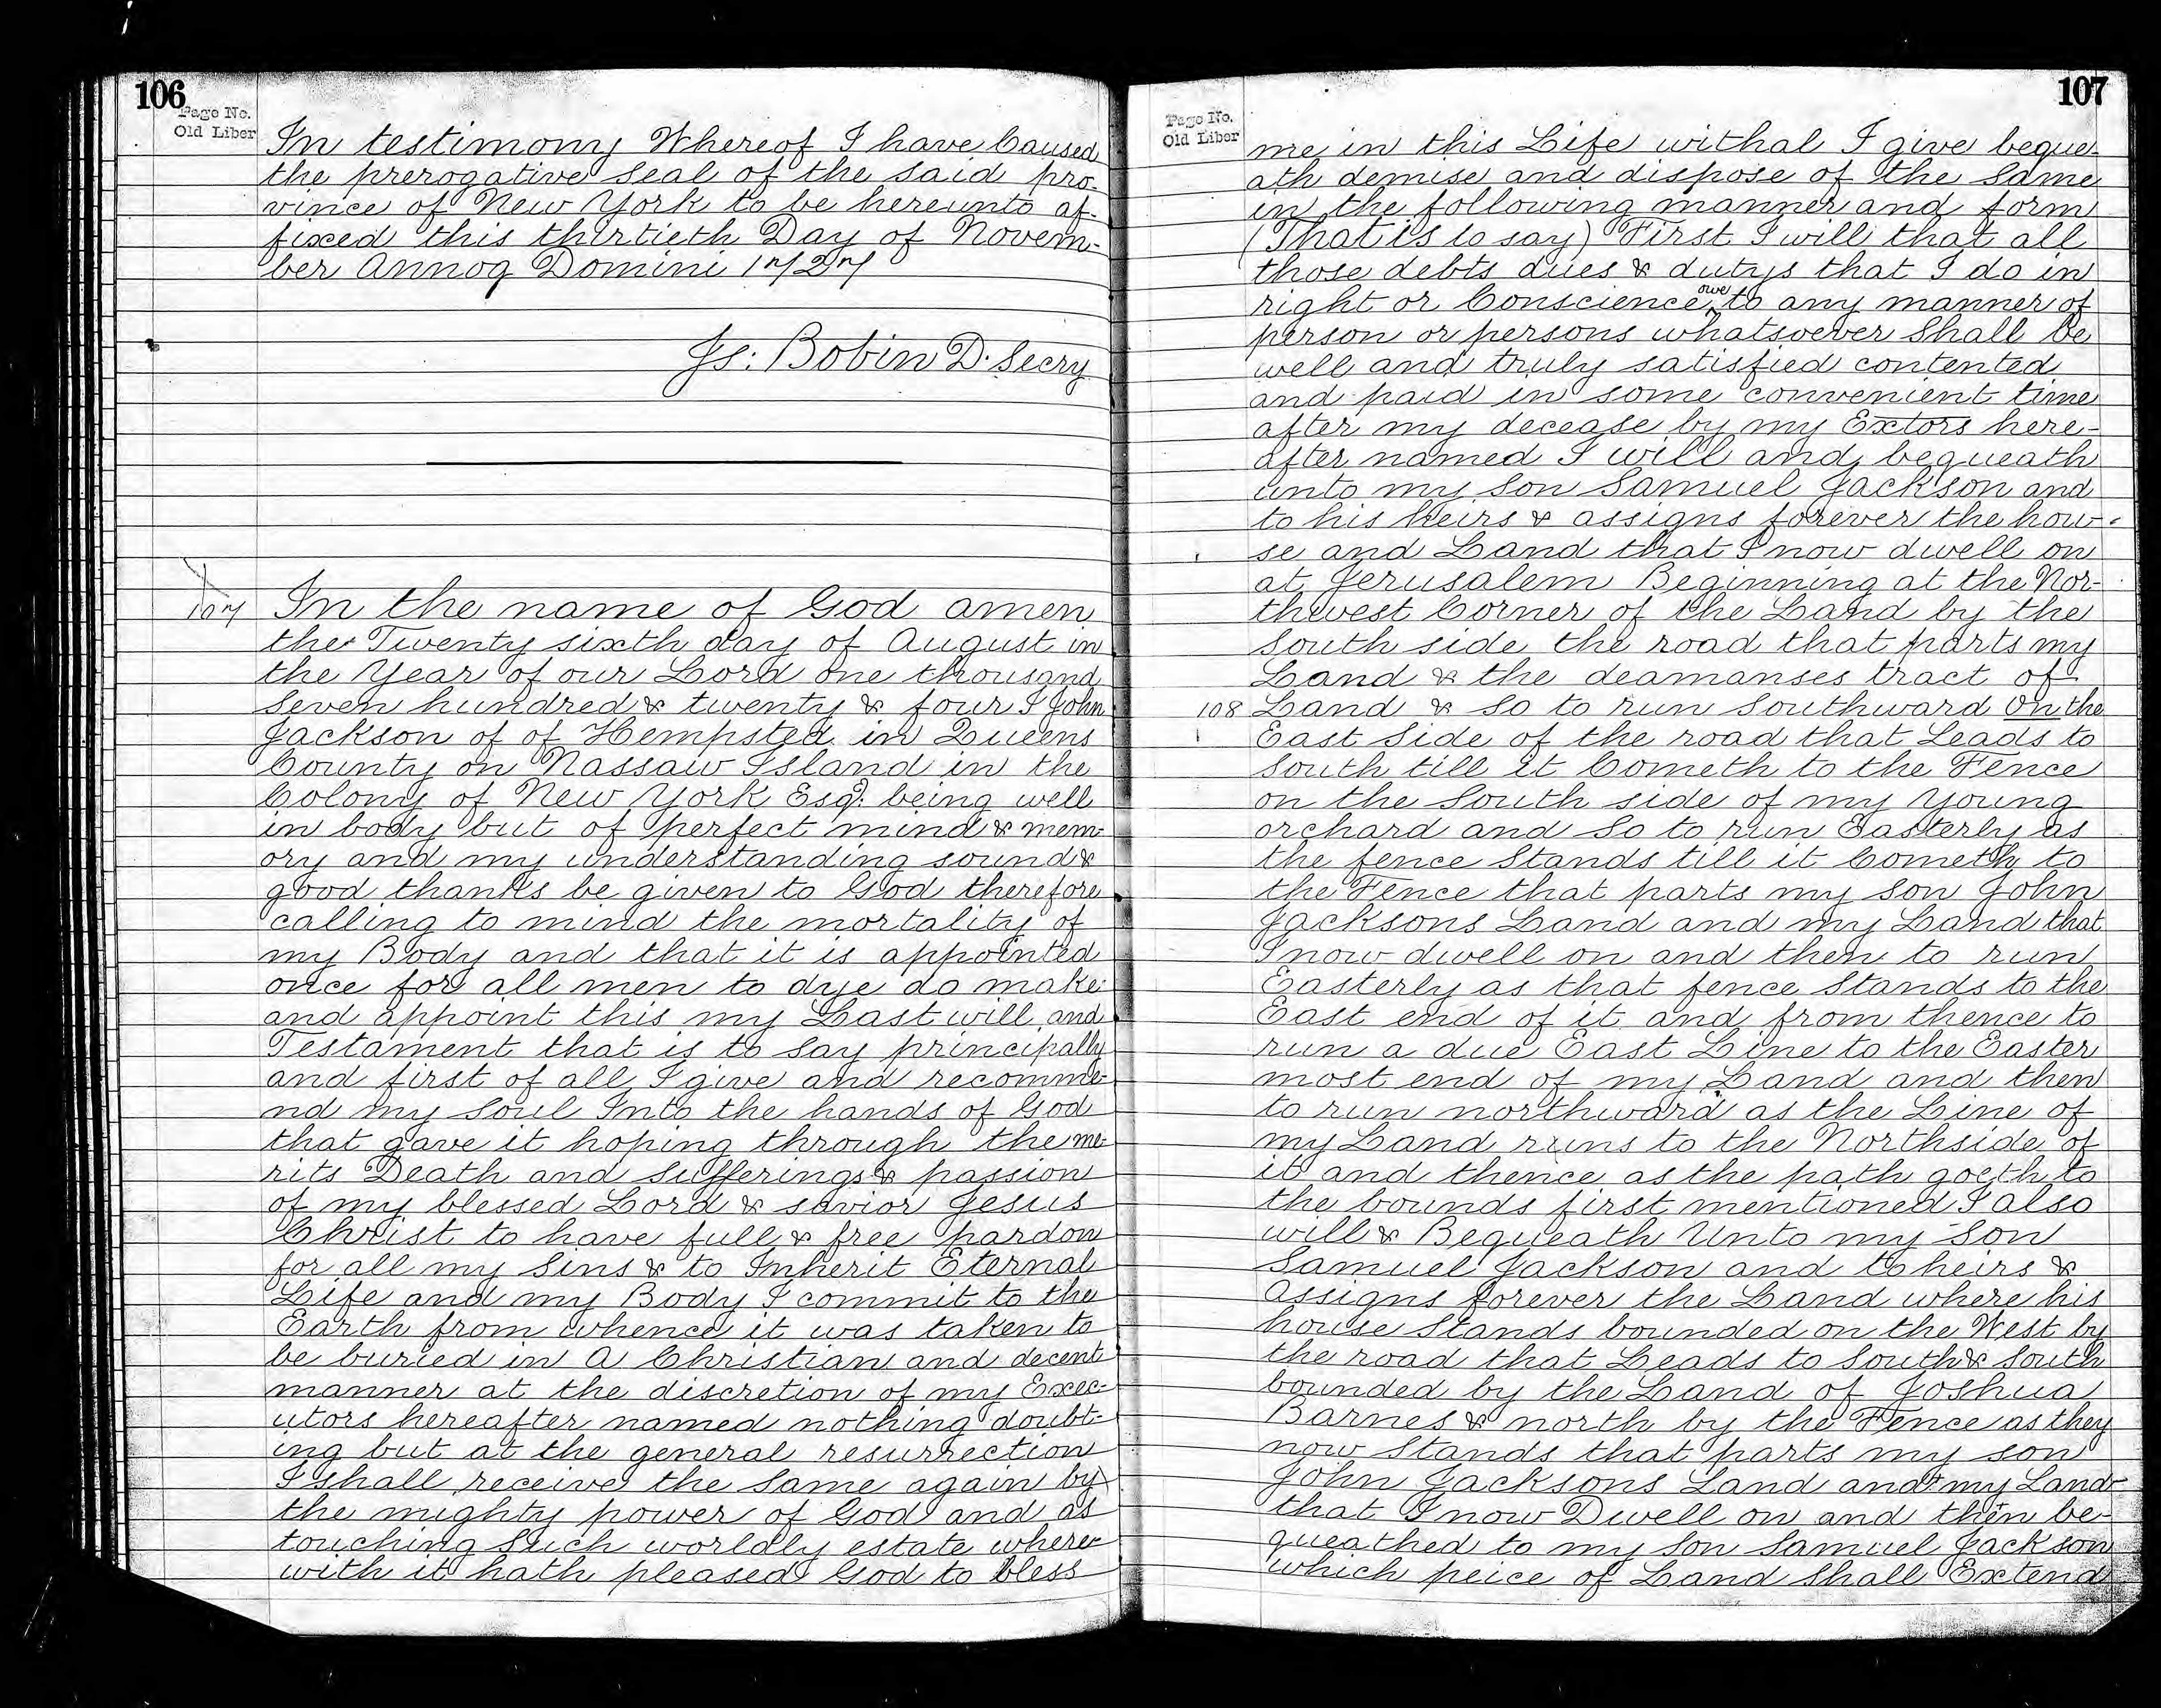 106
Page No.
Old Liber
In testimony Whereof I have Caused
the prerogative seal of the said pro-
vince of New York to be hereunto af-
fixed this thirtieth Day of Novem-
ber Annoq Domini 1727
Js: Bobin D. Secry
107
In the name of God amen
the Twenty sixth day of August in
the Year of our Lord one thousand
seven hundred & twenty & four I John
Jackson of of Hempsted in Queens
County on Nassaw Island in the
Colony of New York Esqr. being well
in body but of perfect mind & mem-
ory and my understanding sound &
good thanks be given to God therefore
calling to mind the mortality of
my Body and that it is appointed
once for all men to dye do make
and appoint this my Last will and
Testament that is to say principally
and first of all I give and recomme-
nd my soul Into the hands of God
that gave it hoping through the me-
rits Death and sufferings & passion
of my blessed Lord & savior Jesus
Christ to have full & free pardon
for all my Sins & to Inherit Eternal
Life and my Body I commit to the
Earth from whence it was taken to
be buried in A Christian and decent
manner at the discretion of my Exec-
utors hereafter named nothing doubt-
ing but at the general resurrection
I shall receive the same again by
the mighty power of God and as
touching such worldly estate where-
with it hath pleased God to bless
107
Page No.
Old Liber
me in this Life withal I give beque-
ath demise and dispose of the same
in the following manner and form
(That is to say) First I will that all
those debts dues & dutys that I do in
right or Conscience owe to any manner of
person or persons whatsoever shall be
well and truly satisfied contented
and paid in some convenient time
after my decease by my Extors here-
after named I will and bequeath
unto my son Samuel Jackson and
to his heirs & assigns forever the how-
se and Land that I now dwell on
at Jerusalem Beginning at the Nor-
thwest Corner of the Land by the
south side the road that parts my
Land & the deamanses tract of
108 Land & so to run southward On the
East side of the road that Leads to
south till it Cometh to the Fence
on the south side of my Young
orchard and so to run Easterly as
the fence stands till it Cometh to
the Fence that parts my son John
Jacksons Land and my Land that
I now dwell on and then to run
Easterly as that fence stands to the
East end of it and from thence to
run a due East Line to the Easter
most end of my Land and then
to run northward as the Line of
my Land runs to the Northside of
it and thence as the path goeth to
the bounds first mentioned I also
will & Bequeath Unto my son
Samuel Jackson and to heirs &
assigns forever the Land where his
house stands bounded on the West by
the road that Leads to south & south
bounded by the Land of Joshua
Barnes & north by the Fence as they
now stands that parts my son
John Jacksons Land and my Land
that I now Dwell on and then be-
queathed to my son Samuel Jackson
which peice of Land shall Extend